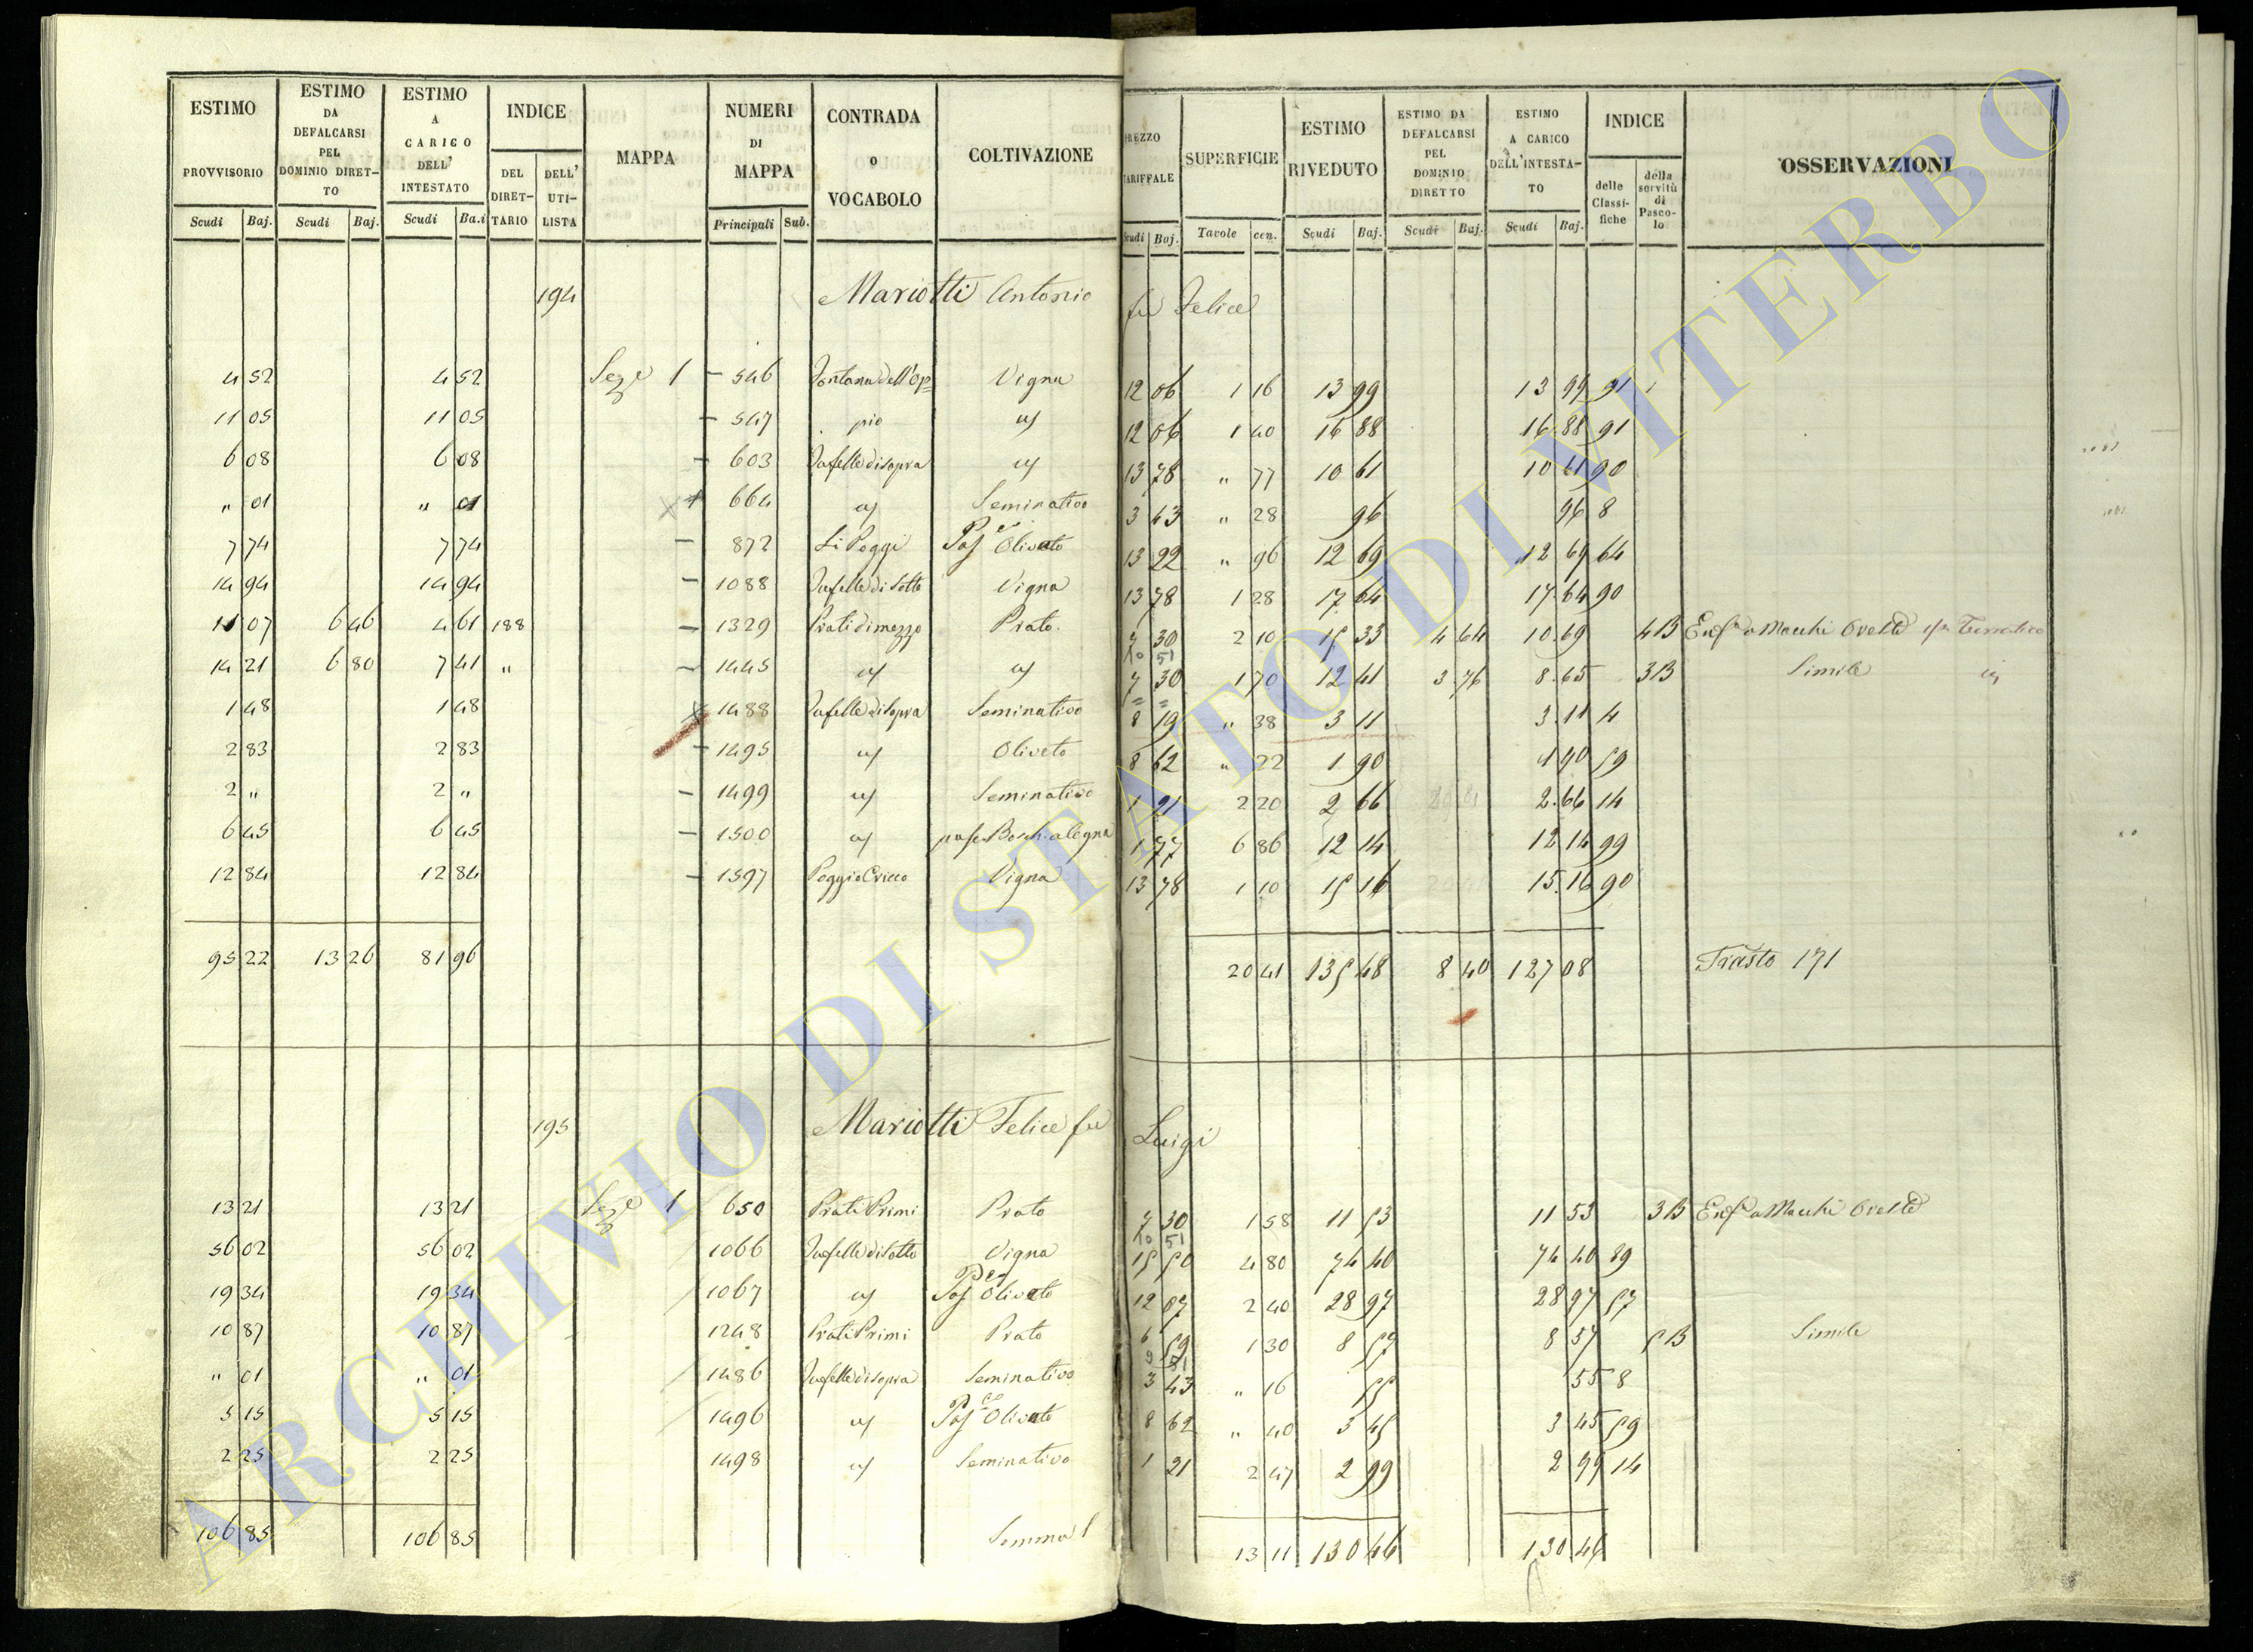 ESTIMO PROVVISORIO Scudi Baj. | ESTIMO DA DEFALCARSI PEL DOMINIO DIRETTO Scudi Baj. | ESTIMO A CARICO DELL' INTESTATO Scudi Ba.i | INDICE DEL DIRETTARIO DELL' UTILISTA | MAPPA | NUMERI DI MAPPA Principali Sub. | CONTRADA O VOCABOLO | COLTIVAZIONE | PREZZO TARIFFALE Scudi Baj. | SUPERFICIE Tavole cen. | ESTIMO RIVEDUTO Scudi Baj. | ESTIMO DA DEFALCARSI PEL DOMINIO DIRETTO Scudi Baj. | ESTIMO A CARICO DELL'INTESTATO Scudi Baj. | INDICE delle Classifiche della servitù di Pascolo | OSSERVAZIONI
194 Mariotti Antonio fu Felice
4 52 4 52 Seze 1 – 546 Fontana dell'Op= Vigna 12 06 1 16 13 99 13 99 91
11 05 11 05 – 547 pio Vigna 12 06 1 40 16 88 16 88 91
6 08 6 08 – 603 di sopra 13 78 " 77 10 61 10 61 90
" 01 " 01 664 Seminativo 3 43 " 28 96 96 8
7 74 7 74 – 872 Li Poggi Olivato 13 22 " 96 12 69 12 69 64
14 94 14 94 – 1088 di sotto Vigna 13 78 1 28 17 64 17 64 90
11 07 6 46 4 61 188 – 1329 Prati di mezzo Prato 7 30 2 10 15 33 4 64 10 69 4B a Macchi
10 51
14 21 6 80 7 41 " – 1445 7 30 1 70 12 41 3 76 8 65 3B Simile
1 48 1 48 1488 di sopra Seminativo 8 19 " 38 3 11 3 11 4
2 83 2 83 – 1495 Oliveto 8 62 " 22 1 90 1 90 59
2 " 2 " – 1499 Seminativo 1 21 2 20 2 66 2 66 14
6 45 6 45 – 1500 1 77 6 86 12 14 12 14 99
12 84 12 84 – 1597 Poggio Vigna 13 78 1 10 15 16 15 16 90
95 22 13 26 81 96 20 41 135 48 8 40 127 08 Trasto 171
195 Mariotti Felice fu Luigi
13 21 13 21 Seze 1 650 Prati Primi Prato 7 30 1 58 11 53 11 53 3B a Macchi
10 51
56 02 56 02 1066 di sotto Vigna 15 50 4 80 74 40 74 40 89
19 34 19 34 1067 Olivato 12 07 2 40 28 97 28 97 57
10 87 10 87 1248 Prati Primi Prato 6 59 1 30 8 57 8 57 5B Simile
" 01 " 01 1486 di sopra Seminativo 3 43 " 16 55 55 8
5 15 5 15 1496 Olivato 8 62 " 40 3 45 3 45 59
2 25 2 25 1498 Seminativo 1 21 2 47 2 99 2 99 14
106 85 106 85 Somma 13 11 130 46 130 46
ARCHIVIO DI STATO DI VITERBO